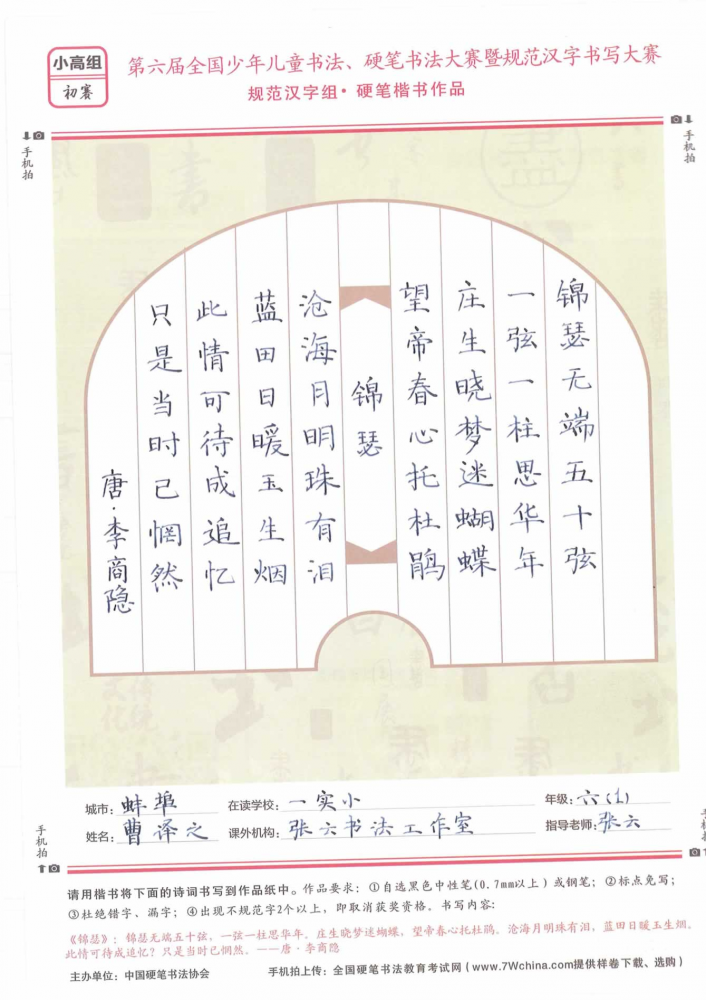 小高组
初赛
第六届全国少年儿童书法、硬笔书法大赛暨规范汉字书写大赛
规范汉字组·硬笔楷书作品
手机拍
手机拍
锦瑟无端五十弦
一弦一柱思华年
庄生晓梦迷蝴蝶
望帝春心托杜鹃
锦瑟
沧海月明珠有泪
蓝田日暖玉生烟
此情可待成追忆
只是当时已惘然
唐·李商隐
城市：蚌埠 在读学校：一实小 年级：六(1)
姓名：曹译之 课外机构：张六书法工作室 指导老师：张六
手机拍
手机拍
请用楷书将下面的诗词书写到作品纸中。作品要求：①自选黑色中性笔(0.7mm以上)或钢笔；②标点免写；
③杜绝错字、漏字；④出现不规范字2个以上，即取消获奖资格。书写内容：
《锦瑟》：锦瑟无端五十弦，一弦一柱思华年。庄生晓梦迷蝴蝶，望帝春心托杜鹃。沧海月明珠有泪，蓝田日暖玉生烟。
此情可待成追忆？只是当时已惘然。——唐·李商隐
主办单位：中国硬笔书法协会 手机拍上传：全国硬笔书法教育考试网(www.7Wchina.com提供样卷下载、选购)